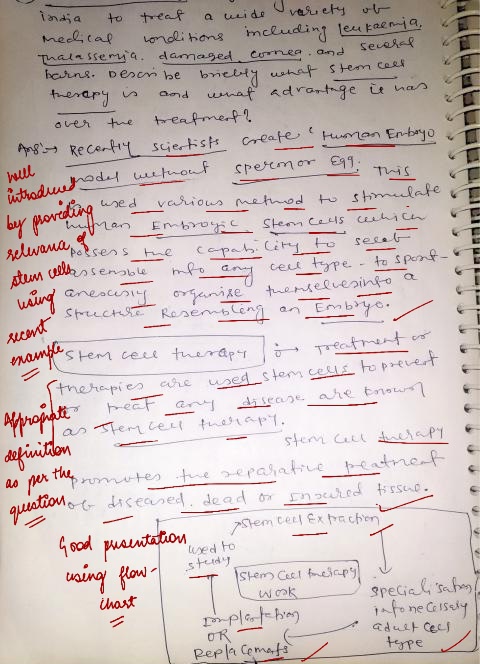 india to treat a wide variety of
medical conditions including leukaemia,
Thalassemia, damaged cornea and several
burns. Describe briefly what stem cell
therapy is and what advantage it has
over the treatment?
Ans:→ Recently scientists create "Human Embryo
model without sperm or Egg. This
used various method to stimulate
human Embroyic Stem cells which
possess the capability to
assemble into any cell type - to spont-
aneously organise themselves into a
structure Resembling an Embryo.
well
introduced
by providing
relevance of
stem cells
using
recent
example
Stem cell therapy :→ Treatment or
therapies are used stem cells to prevent
or treat any disease are known
as stem cell therapy.
stem cell therapy
promotes the reparative treatment
of diseased, dead or insured tissue.
Appropiate
definition
as per the
question
Good presentation
using flow-
chart
Stem cell Extraction
used to
study
Stem cell therapy
work
specialisation
into necessary
adult cell
type
Implantation
OR
Replacements